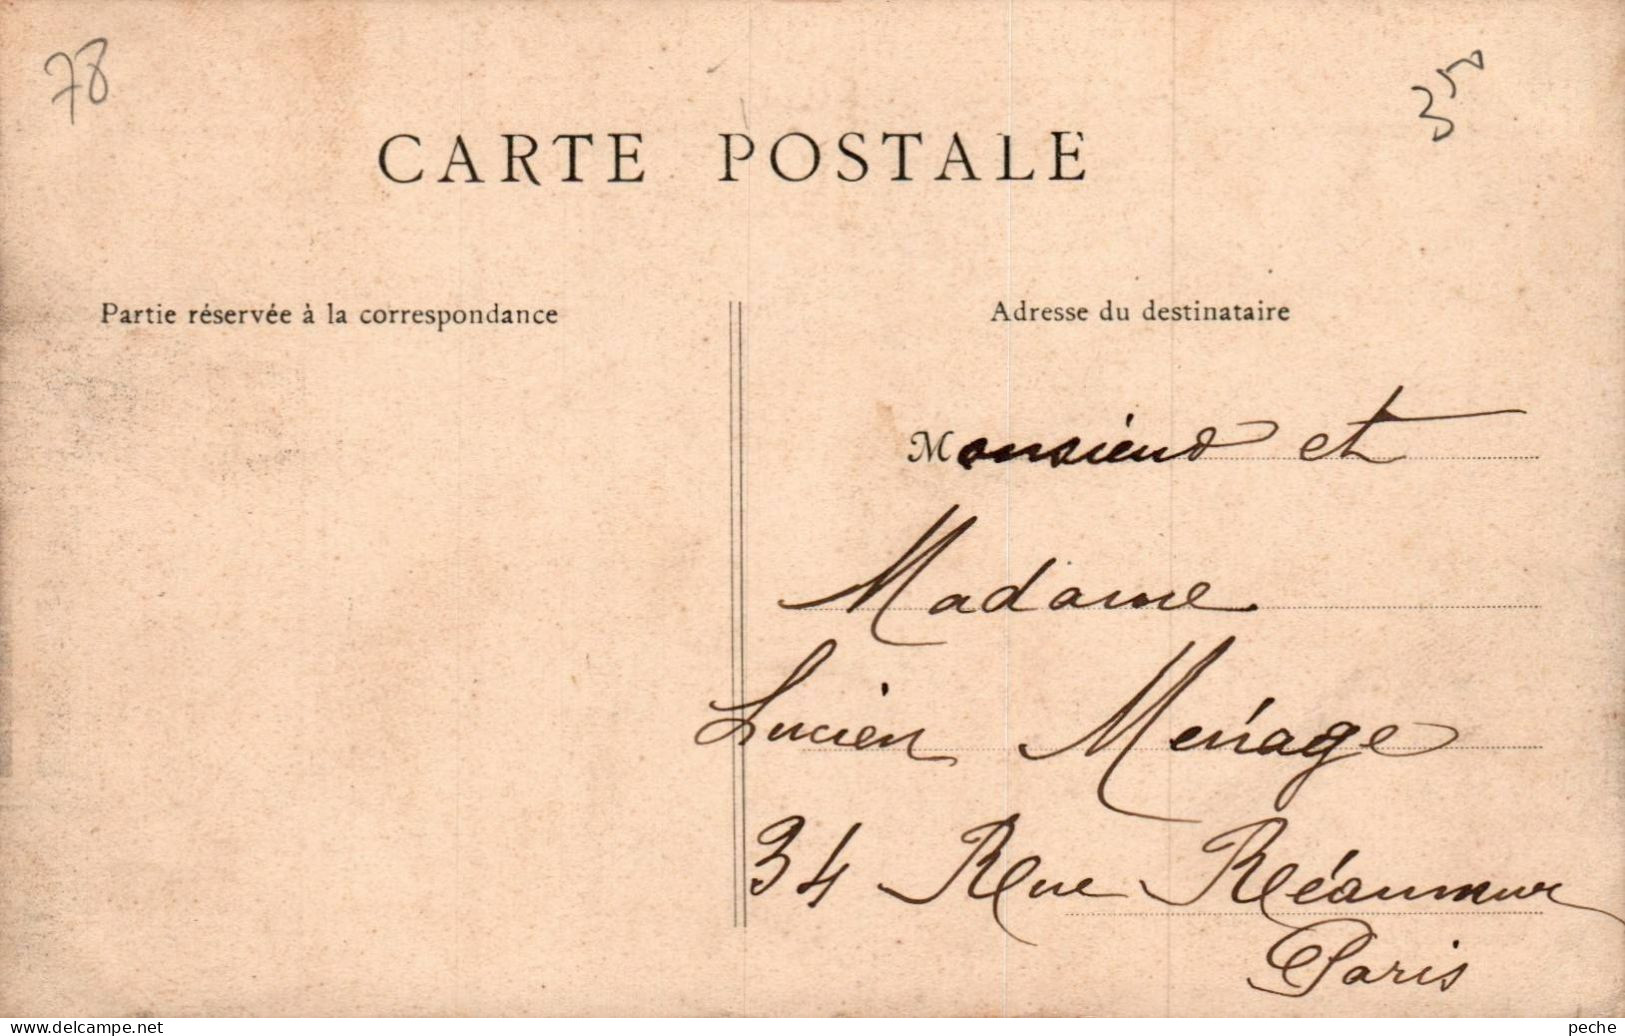 78
3 50
CARTE POSTALE
Partie réservée à la correspondance
Adresse du destinataire
Monsieur et
Madame
Lucien Ménage
34 Rue Réaumur
Paris
www.delcampe.net
peche